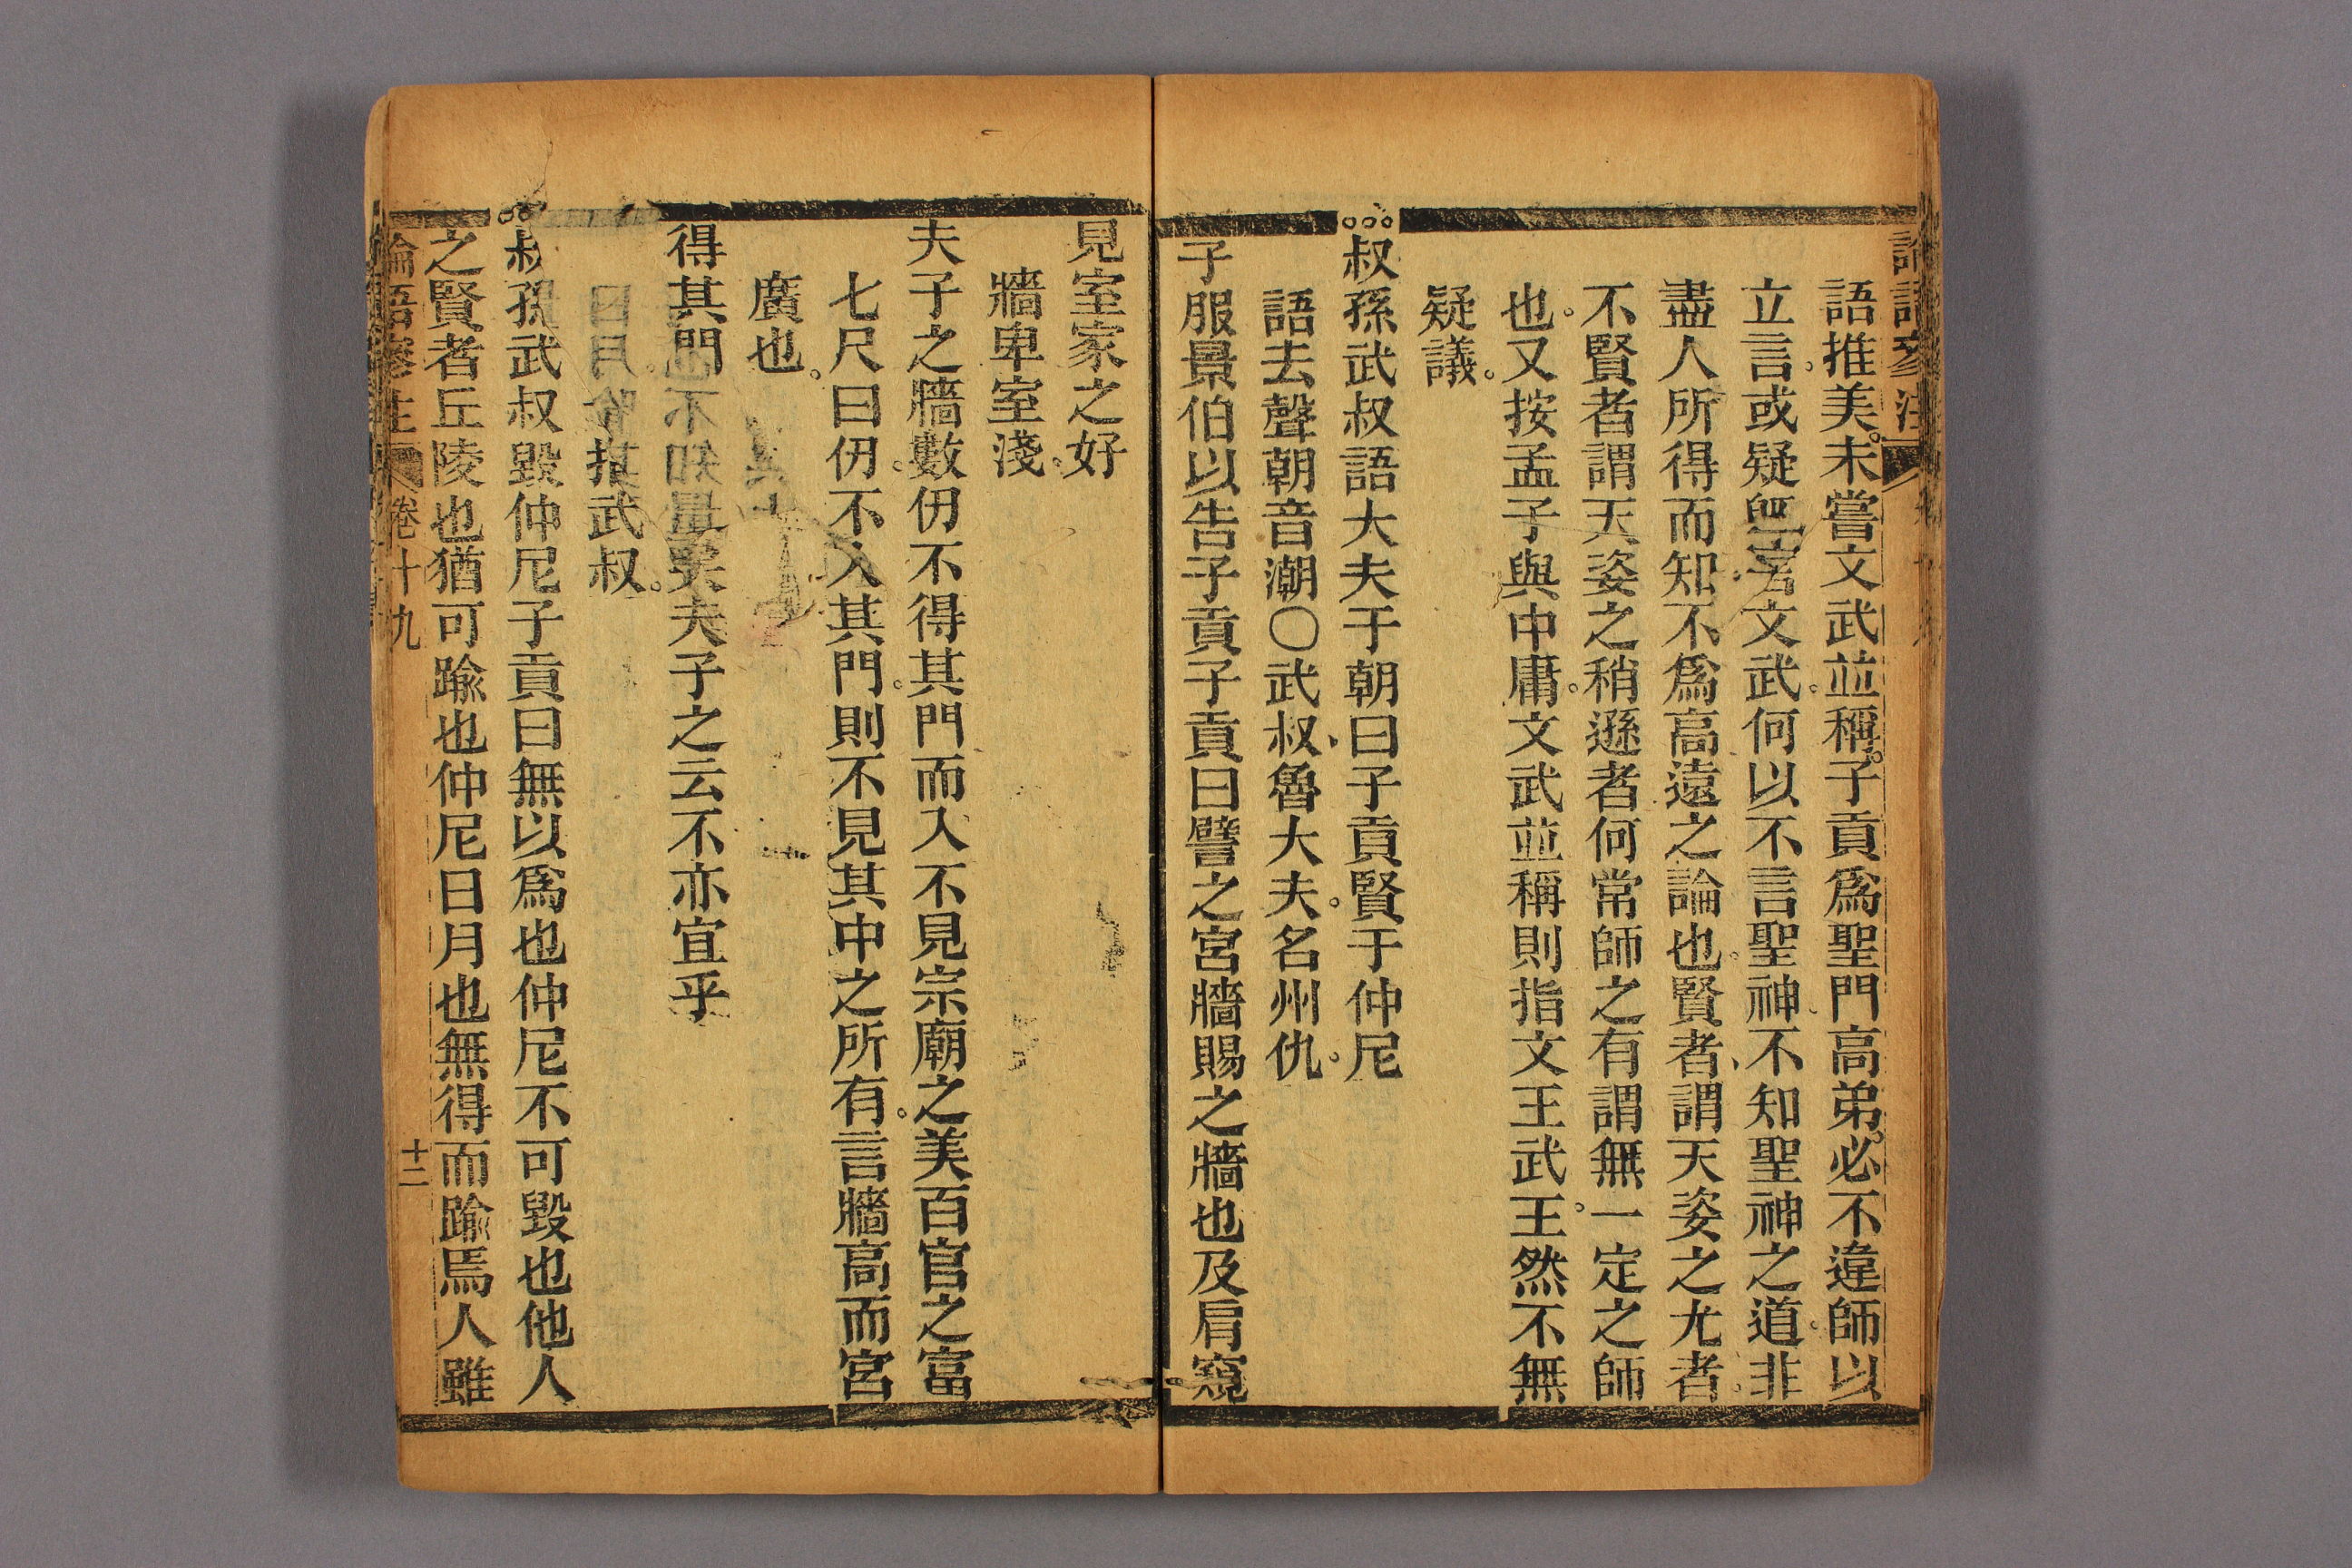 語推美。未嘗文武並稱。子貢爲聖門高弟。必不違師以
立言。或疑單言文武。何以不言聖神、不知聖神之道。非
盡人所得而知。不爲高遠之論也。賢者、謂天姿之尤者。
不賢者謂天姿之稍遜者何常師之有謂無一定之師
也。又按孟子與中庸。文武並稱則指文王武王。然不無
疑議。
叔孫武叔語大夫于朝曰子貢賢于仲尼
語去聲朝音潮〇武叔、魯大夫。名州仇。
子服景伯以告子貢子貢曰譬之宮牆賜之牆也及肩窺
見室家之好
牆卑室淺。
夫子之牆數仞不得其門而入不見宗廟之美百官之富
七尺曰仞。不入其門。則不見其中之所有。言牆高而宮
廣也。
得其門
夫子之云不亦宜乎
指武叔。
叔孫武叔毀仲尼子貢曰無以爲也仲尼不可毀也他人
之賢者丘陵也猶可踰也仲尼日月也無得而踰焉人雖
論語參注 卷十九 十二